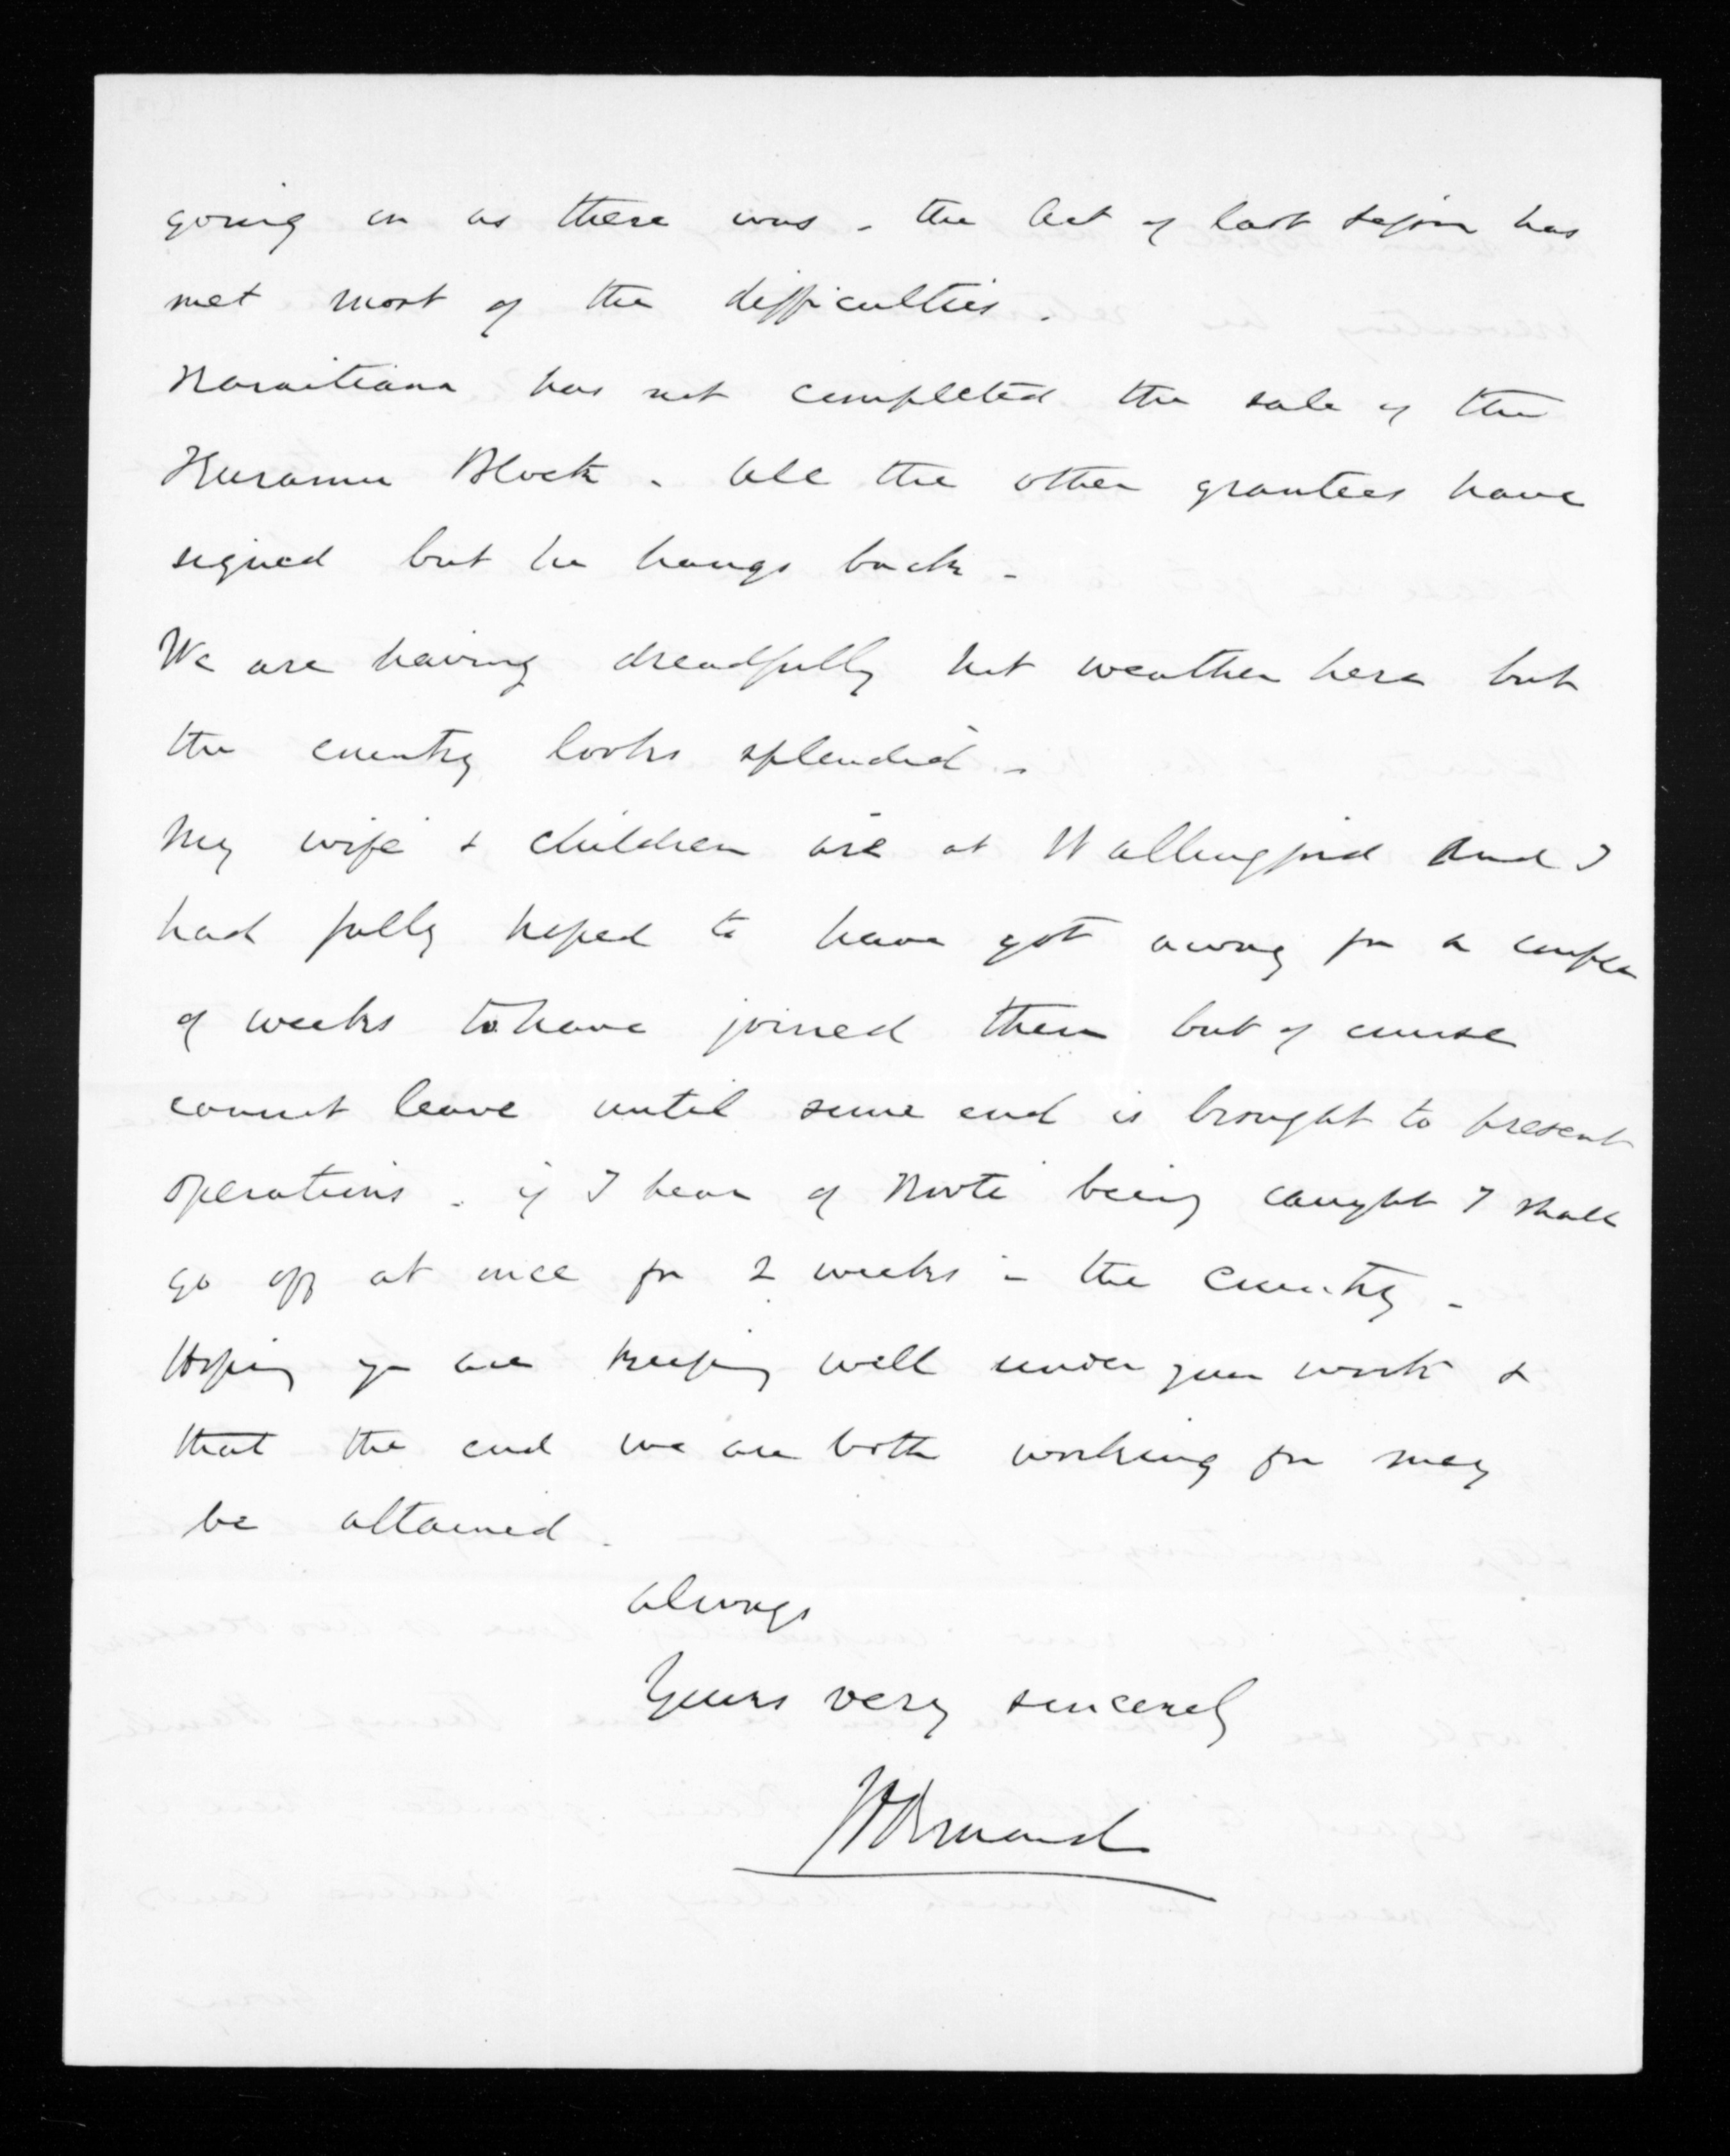 going on as there was - the Act of last session has
met most of the difficulties.
Karaitiana has not completed the sale of the
Kuramu Block - all the other grantees have
signed but he hangs back -
We are having dreadfully hot weather here but
the country looks splendid -
My wife & children are at Wallingford and I
had fully hoped to have got away for a couple
of weeks to have joined them but of course
cannot leave until some end is brought to present
operations - if I hear of Kooti being caught I shall
go off at once for 2 weeks in the country -
Hoping you are keeping well under your work &
that the end we are both working for may
be attained.
always
Yours very sincerely
JDOrmond